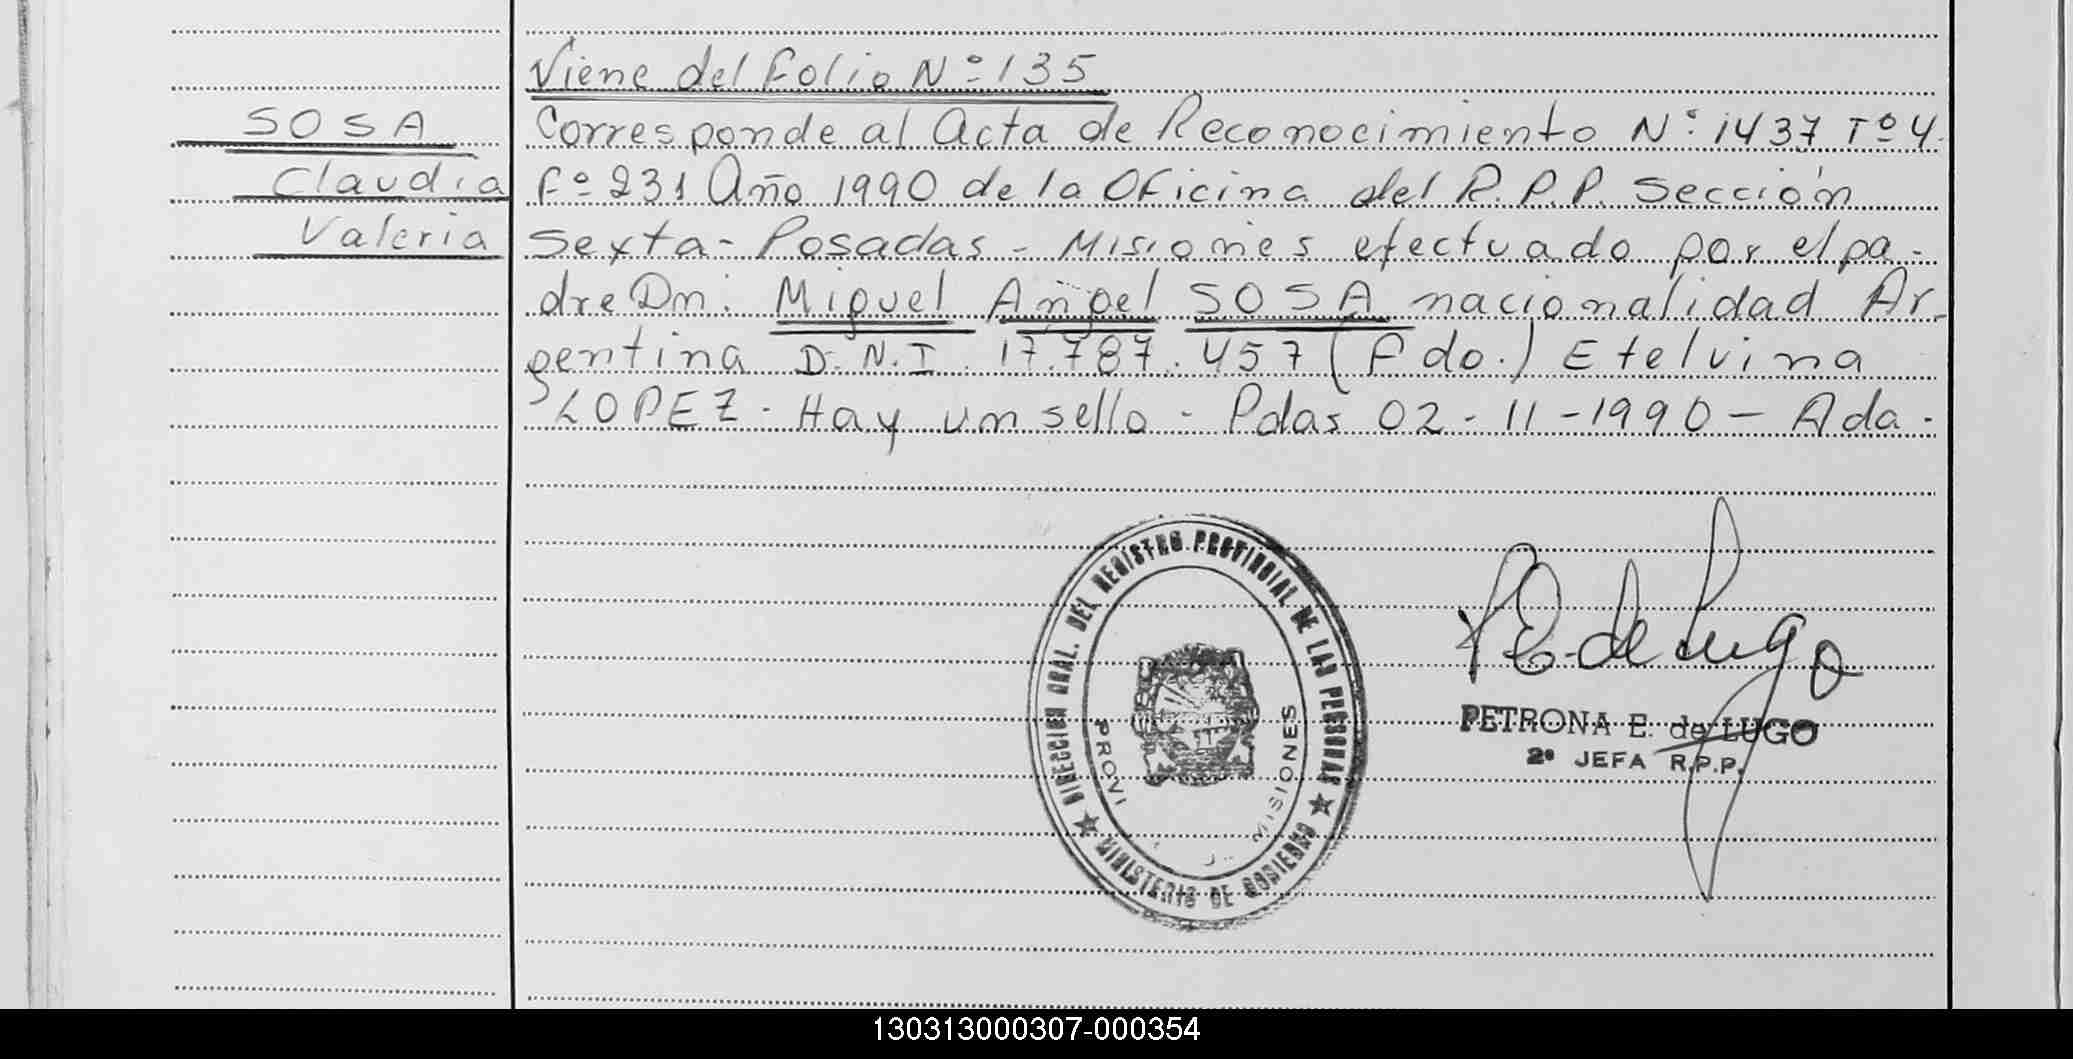 Viene del Folio Nº 135
SOSA
Claudia
Valeria
Corresponde al Acta de Reconocimiento Nº 1437 Tº 4
Fº 231 Año 1990 de la Oficina del R.P.P. Sección
Sexta - Posadas - Misiones efectuado por el pa-
dre Dn. Miguel Angel SOSA nacionalidad Ar-
gentina D.N.I. 17.787.457 (Fdo.) Etelvina
LOPEZ - Hay un sello - Pdas 02-11-1990 - Ada.
DIRECCION GRAL. DEL REGISTRO PROVINCIAL DE LAS PERSONAS
MINISTERIO DE GOBIERNO
PROVI
MISIONES
P E de Lugo
PETRONA E. de LUGO
2º JEFA R.P.P.
130313000307-000354